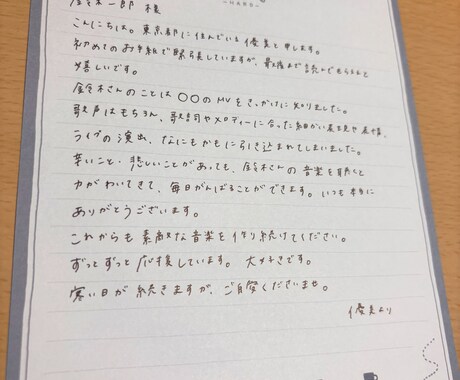 鈴木一郎 様
こんにちは。東京都に住んでいる優美と申します。
初めてのお手紙で緊張していますが、最後まで読んでもらえると
嬉しいです。
鈴木さんのことは〇〇のMVをきっかけに知りました。
歌声はもちろん、歌詞やメロディーに合った細かい表現や表情、
ライブの演出、なにもかもに引き込まれてしまいました。
辛いこと・悲しいことがあっても、鈴木さんの音楽を聴くと
力がわいてきて、毎日がんばることができます。いつも本当に
ありがとうございます。
これからも素敵な音楽を作り続けてください。
ずっとずっと応援しています。大好きです。
寒い日が続きますが、ご自愛くださいませ。
優美より